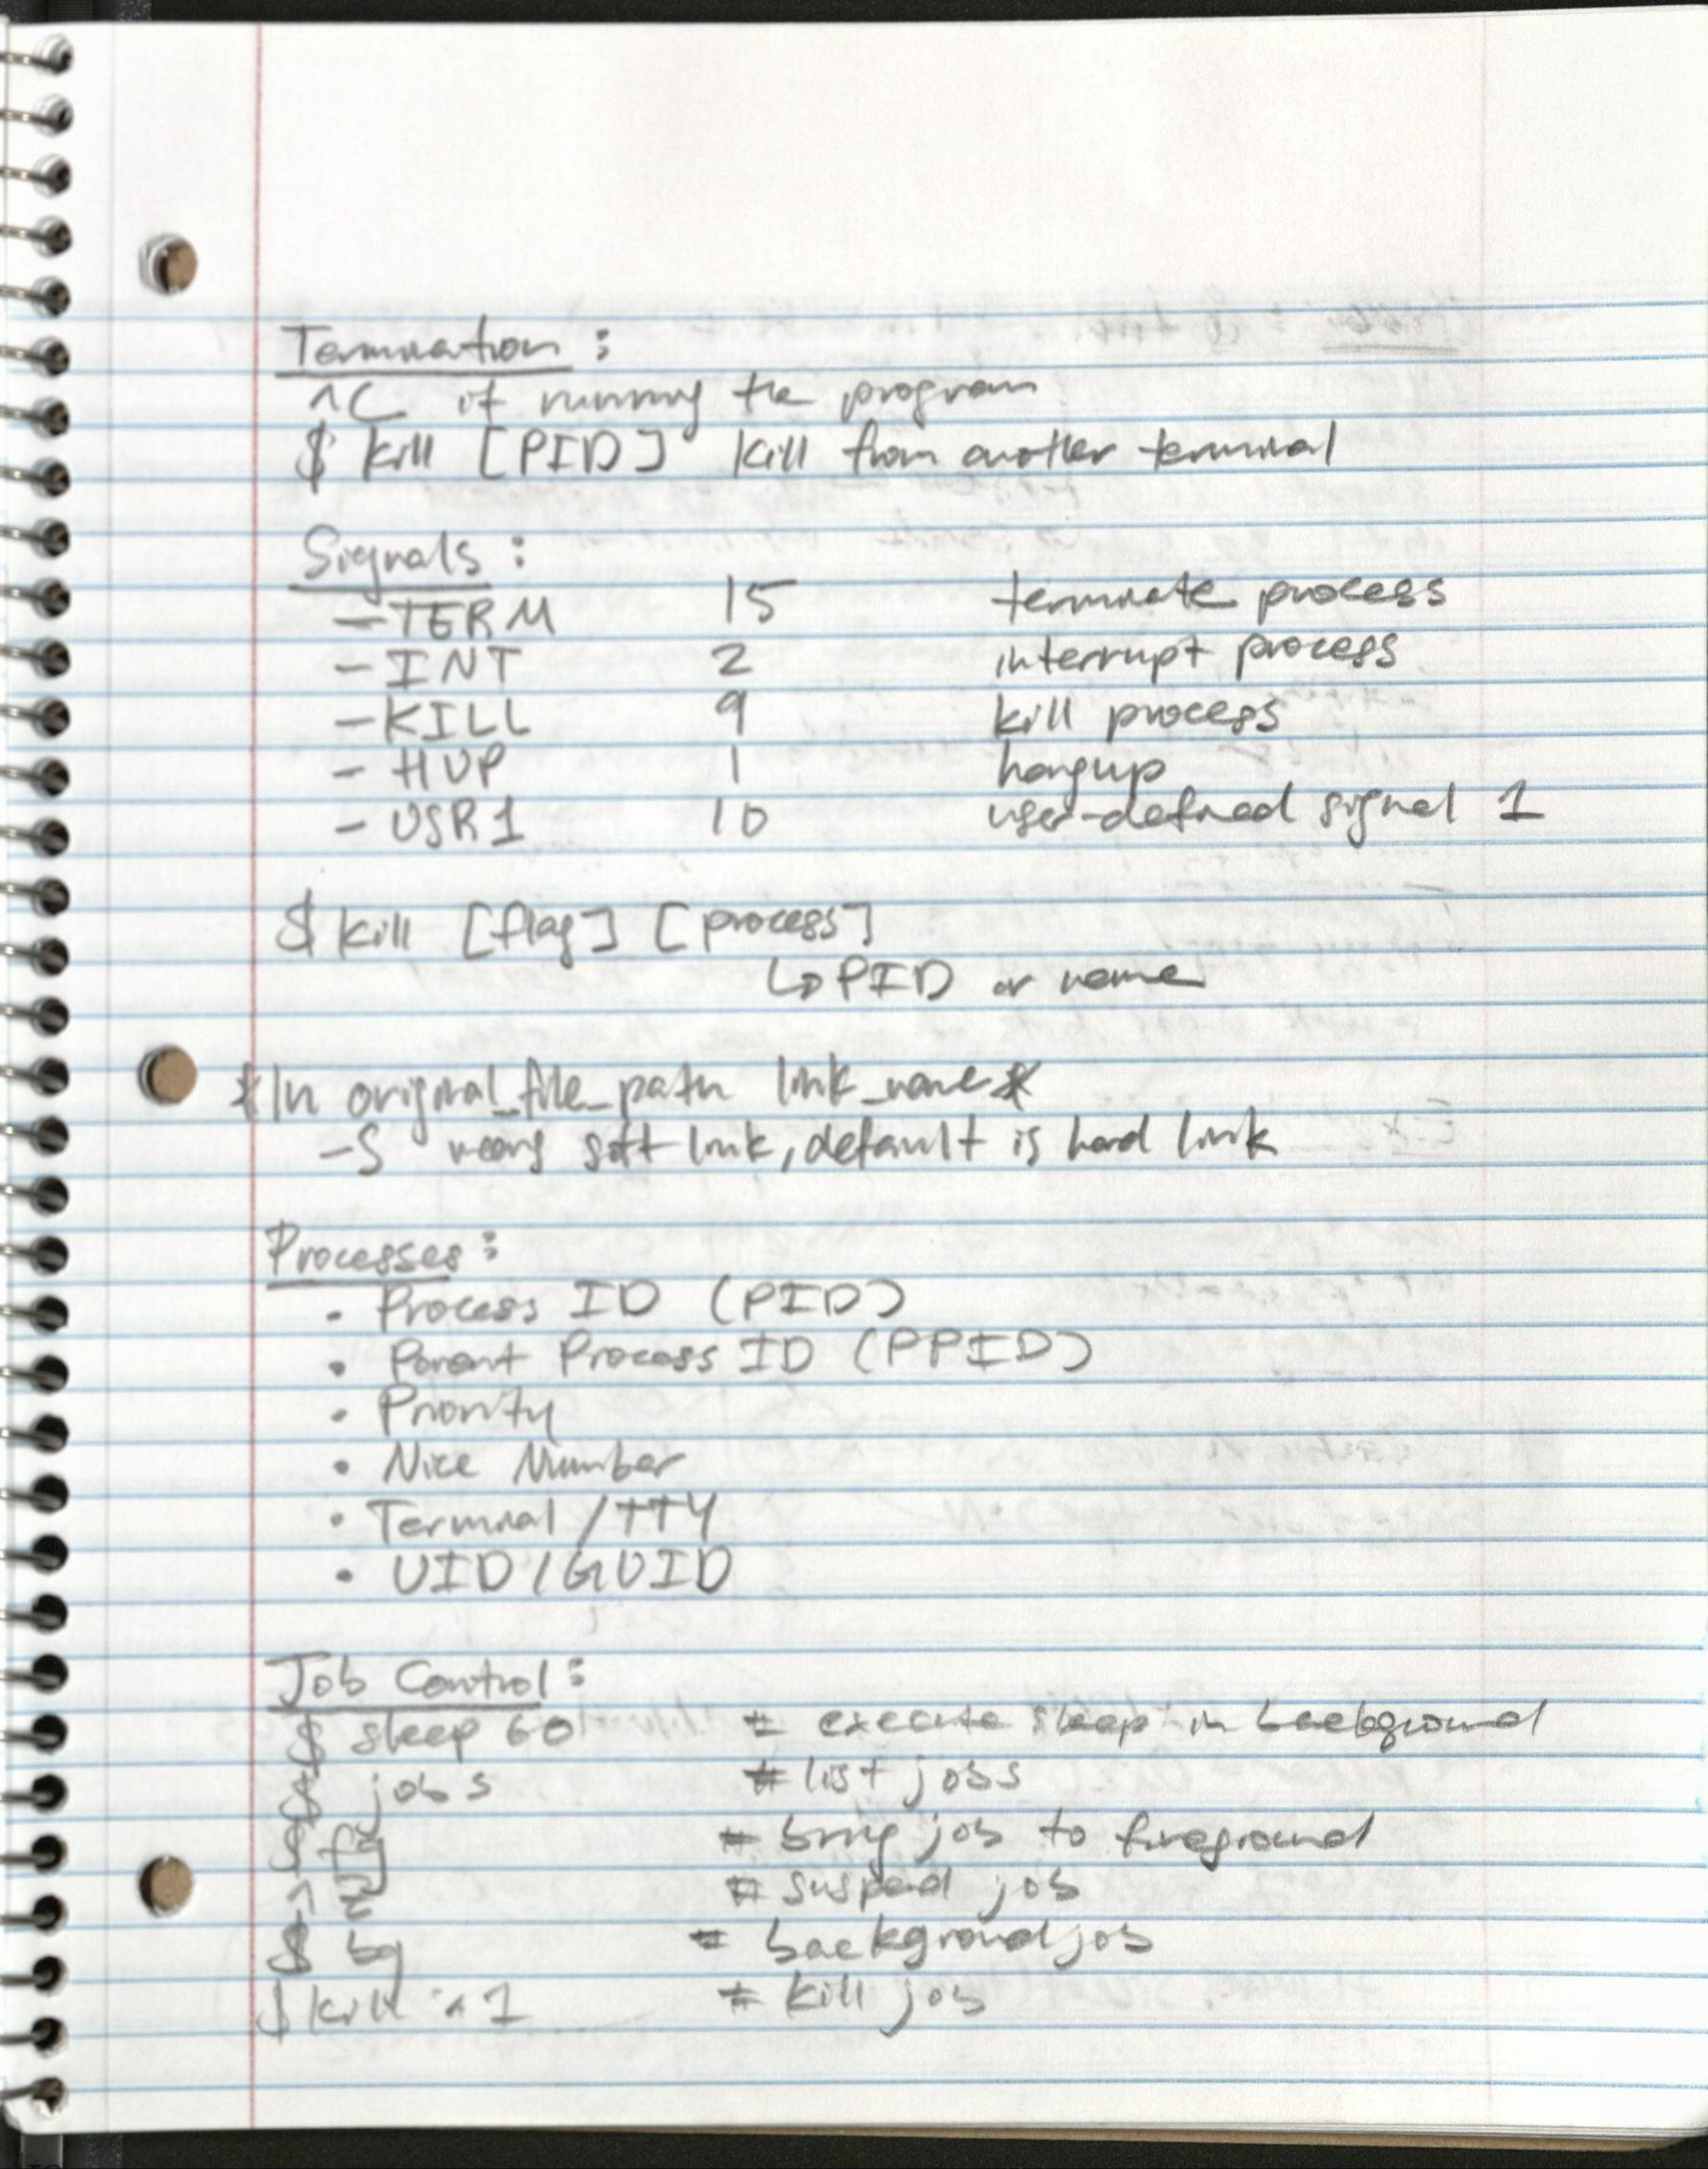 Termination:
^C if running the program
$ kill [PID] kill from another terminal
Signals:
- TERM 15 terminate process
- INT 2 interrupt process
- KILL 9 kill process
- HUP 1 hangup
- USR1 10 user-defined signal 1
$ kill [flag] [process]
↳ PID or name
*ln original_file_path link_name*
-S means soft link, default is hard link
Processes:
• Process ID (PID)
• Parent Process ID (PPID)
• Priority
• Nice Number
• Terminal/TTY
• UID/GUID
Job Control:
$ sleep 60 # execute sleep in background
$ jobs # list jobs
$ fg # bring job to foreground
# suspend job
$ bg # background job
$ kill 1 # kill job